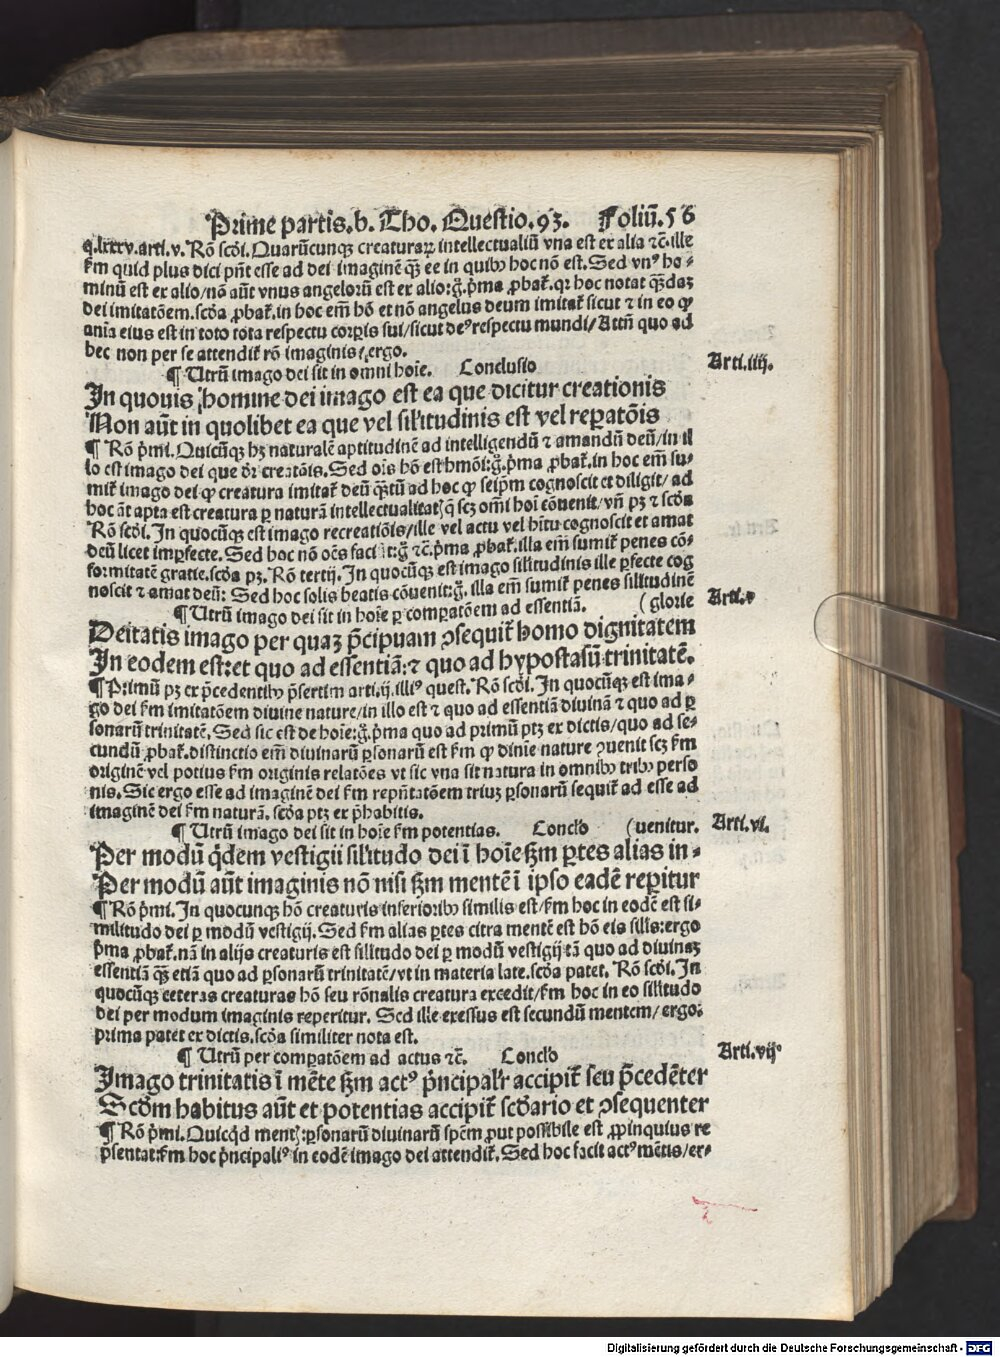 Prime partis.b. Tho. Questio.93. Foliū.56
q.lxxxv.arti.v. Rō scḋi. Quarūcunqꝫ creaturaꝝ intellectualiū vna est ex alia ⁊c̄.ille
ẜm quid plus dici pn̄t esse ad dei imaginē qꝫ̄ ee in quibꝰ hoc nō est. Sed vnꝰ ho⸗
minū est ex alio/nō aūt vnus angelorū est ex alio:g̊.p̄ma ꝓbat̄.qꝛ hoc notat qꝫ̄daꝫ
dei imitatōem.scḋa ꝓbat̄.in hoc em̄ hō et nō angelus deum imitat̄ sicut ⁊ in eo ꝙ
aīa eius est in toto tota respectu corꝑis sui/sicut deꝰ respectu mundi/Attn̄ quo ad
hec non per se attendit̄ rō imaginis/ergo.
¶ Utrū imago dei sit in omni hoīe. Conclusio
Arti.iiij.
In quouis homine dei imago est ea que dicitur creationis
Non aūt in quolibet ea que vel sil'itudinis est vel reꝑatōis
¶ Rō p̄mi. Quicūqꝫ hꝫ naturalē aptitudinē ad intelligendū ⁊ amandū deū/in il
lo est imago dei que dr̄ creatōis. Sed oīs hō est hmōi:g̊.p̄ma ꝓbat̄.in hoc em̄ su⸗
mit̄ imago dei ꝙ creatura imitat̄ deū qꝫ̄tū ad hoc ꝙ seip̄m cognoscit et diligit/ad
hoc āt apta est creatura ꝑ naturā intellectualitat̄ q̄ scꝫ omī hoī cōuenit/vn̄ pꝫ ⁊ scḋa
Rō scḋi. In quocūqꝫ est imago recreatiōis/ille vel actu vel hītu cognoscit et amat
deū licet imꝑfecte. Sed hoc nō oēs faciūt:g̊ ⁊c̄.p̄ma ꝓbat̄.illa em̄ sumit̄ penes cō⸗
formitatē gratie.scḋa pꝫ. Rō tertij. In quocūqꝫ est imago silitudinis ille ꝑfecte cog
noscit ⁊ amat deū: Sed hoc solis beatis cōuenit:g̊. illa em̄ sumit̄ penes silitudinē
¶ Utrū imago dei sit in hoīe ꝑ comꝑatōem ad essentiā. (glorie
Arti.v
Deitatis imago per quaꝫ p̄cipuam ꝯsequit̄ homo dignitatem
In eodem est:et quo ad essentiā:⁊ quo ad hypostasū trinitatē.
¶ Primū pꝫ ex p̄cedentibꝰ p̄sertim arti.ij.illiꝰ quest. Rō scḋi. In quocūqꝫ est ima⸗
go dei ẜm imitatōem diuine nature/in illo est ⁊ quo ad essentiā diuinā ⁊ quo ad ꝑ
sonarū trinitatē. Sed sic est de hoīe:g̊.p̄ma quo ad primū ptꝫ ex dictis/quo ad se⸗
cundū ꝓbat̄.distinctio em̄ diuinarū ꝑsonarū est ẜm ꝙ diuīe nature ꝯuenit scꝫ ẜm
originē vel potius ẜm originis relatōes vt sic vna sit natura in omnibꝰ tribꝰ perso
nis. Sic ergo esse ad imaginē dei ẜm repn̄tatōem triuꝫ ꝑsonarū sequit̄ ad esse ad
imaginē dei ẜm naturā. scḋa ptꝫ ex p̄habitis.
¶ Utrū imago dei sit in hoīe ẜm potentias. Conclo̅ (uenitur.
Arti.vi.
Per modū q̇dem vestigij sil'itudo dei ī hoīe ẜm ꝑtes alias in⸗
Per modū aūt imaginis nō nisi ẜm mentē ī ipso eadē reꝑitur
¶ Rō p̄mi. In quocunqꝫ hō creaturis inferioribꝰ similis est/ẜm hoc in eodē est si⸗
militudo dei ꝑ modū vestigij. Sed ẜm alias ꝑtes citra mentē est hō eis silis:ergo
p̄ma ꝓbat̄.nā in alijs creaturis est silitudo dei ꝑ modū vestigij tā quo ad diuinaꝫ
essentiā qꝫ̄ etiā quo ad ꝑsonarū trinitatē/vt in materia late.scḋa patet. Rō scḋi. In
quocūqꝫ ceteras creaturas hō seu rōnalis creatura excedit/ẜm hoc in eo silitudo
dei per modum imaginis reperitur. Sed ille exessus est secundū mentem/ergo.
prima patet ex dictis.scḋa similiter nota est.
¶ Utrū per comꝑatōem ad actus ⁊c̄. Conclo̅
Arti.vijꝰ
Imago trinitatis ī mēte ẜm actꝰ p̄ncipal'r accipit̄ seu p̄cedēter
Scḋm habitus aūt et potentias accipit̄ scḋario et ꝯsequenter
¶ Rō p̄mi. Quicq̇d ment̄:ꝑsonarū diuinarū spēm ꝓut possibile est ꝓpinquius re
p̄sentat:ẜm hoc p̄ncipaliꝰ in eodē imago dei attendit̄. Sed hoc facit actꝰ mētis/er⸗
Digitalisierung gefördert durch die Deutsche Forschungsgemeinschaft - DFG